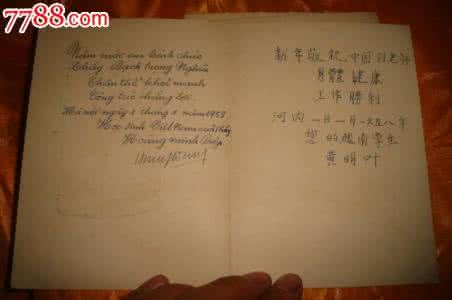 7788.com
中国收藏热线
Năm mới em kính chúc
Thầy Bạch trong Nghĩa
Thân thể khoẻ mạnh
Công tác thắng lợi
Hà nội ngày 1 tháng 1 năm 1958
Học sinh Việt Nam của thầy
Hoàng minh Diệp
新年敬祝中国白老师
身體健康
工作勝利
河内一月一日一九五八年
您的越南学生
黄明叶